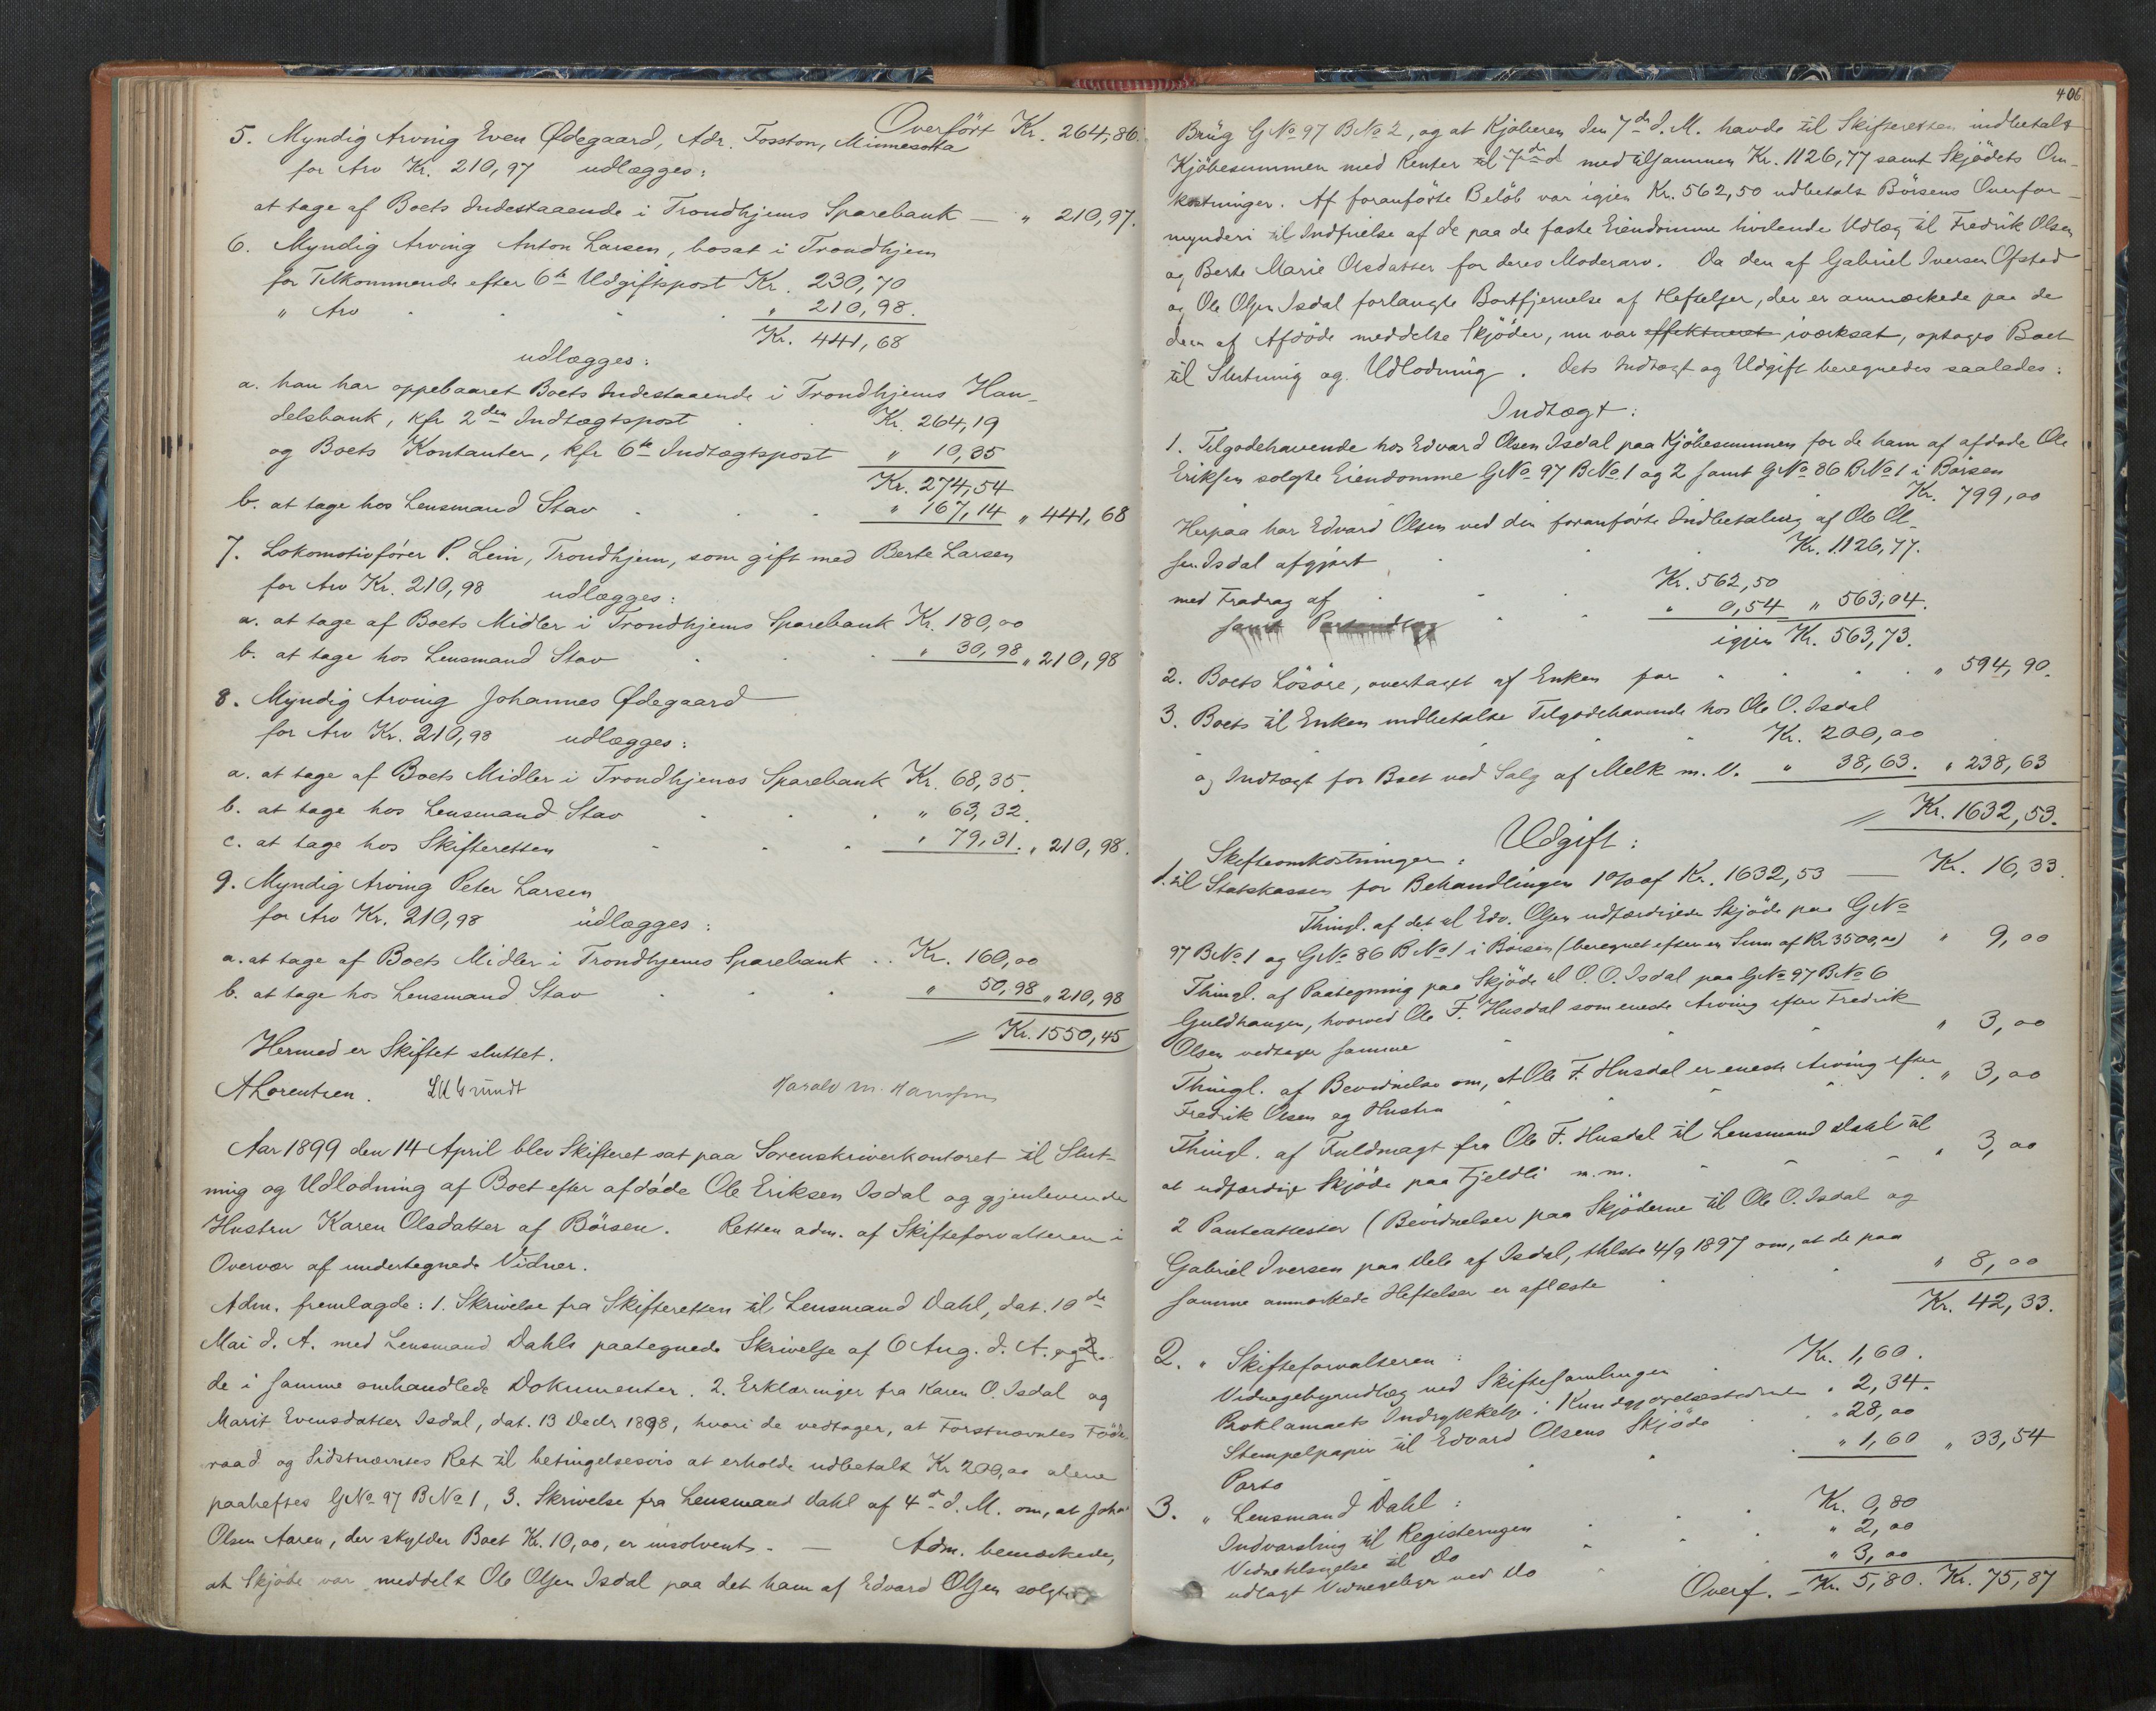 Overført Kr. 264,86.
5. Myndig Arving Even Ødegaard, Adr. Fosston, Minnesotta
for Arv Kr. 210,97 udlægges:
at tage af Boets Indestaaende i Trondhjems Sparebank — " 210,97.
6. Myndig Arving Anton Larsen, bosat i Trondhjem
for Tilkommende efter 6te Udgiftspost Kr. 230,70
" Arv " 210,98.
Kr. 441,68
udlægges:
a. han har oppebaaret Boets Indestaaende i Trondhjems Han-
delsbank, kfr 2den Indtægtspost Kr. 264,19
og Boets Kontanter, kfr 6te Indtægtspost " 10,35
Kr. 274,54
b. at tage hos Lensmand Stav " 167,14 " 441,68
7. Lokomotivfører P. Lein, Trondhjem, som gift med Berte Larsen
for Arv Kr. 210,98 udlægges:
a. at tage af Boets Midler i Trondhjems Sparebank Kr. 180,00
b. at tage hos Lensmand Stav " 30,98 " 210,98
8. Myndig Arving Johannes Ødegaard
for Arv Kr. 210,98 udlægges:
a. at tage af Boets Midler i Trondhjems Sparebank Kr. 68,35.
b. at tage hos Lensmand Stav " 63,32.
c. at tage hos Skifteretten " 79,31. " 210,98.
9. Myndig Arving Peter Larsen
for Arv Kr. 210,98 udlægges:
a. at tage af Boets Midler i Trondhjems Sparebank .. Kr. 160,00
b. at tage hos Lensmand Stav " 50,98 " 210,98
Kr. 1550,45
Hermed er Skiftet sluttet.
A Lorentsen. Grundt Harald M. Hansen
Aar 1899 den 14 April blev Skifteret sat paa Sorenskriverkontoret til Slut-
ning og Udlodning af Boet efter afdøde Ole Eriksen Isdal og gjenlevende
Hustru Karen Olsdatter af Börsen. Retten adm. af Skifteforvalteren i
Overvær af undertegnede Vidner.
Adm. fremlagde: 1. Skrivelse fra Skifteretten til Lensmand Dahl, dat. 10de
Mai d. A. med Lensmand Dahls paategnede Skrivelse af 6 Aug. d. A. og 2
de i samme omhandlede Dokumenter. 2. Erklæringer fra Karen O. Isdal og
Marit Evensdatter Isdal, dat. 13 Decbr 1898, hvori de vedtager, at Førstnævntes Føde-
raad og Sidstnævntes Ret til betingelsesvis at erholde udbetalt Kr 200,00 alene
paaheftes GNo 97 BNo 1, 3. Skrivelse fra Lensmand Dahl af 4de d. M. om, at Joh
Olsen Aaren, der skylder Boet Kr. 10,00, er insolvent. — Adm. bemærkede,
at Skjøde var meddelt Ole Olsen Isdal paa det ham af Edvard Olsen solgte
406
Brug GNo 97 BNo 2, og at Kjøberen den 7de d. M. havde til Skifteretten indbetalt
Kjöbesummen med Renter til 7de d med tilsammen Kr. 1126,77 samt Skjödets Om-
kostninger. Af foranførte Belöb var igjen Kr. 562,50 udbetalt Börsens Overfor-
mynderi til Indfrielse af de paa de faste Eiendomme hvilende Udlæg til Fredrik Olsen
og Berte Marie Olsdatter for deres Moderarv. Da den af Gabriel Iversen Ofstad
og Ole Olsen Isdal forlangte Bortfjernelse af Heftelser, der er anmærkede paa de
dem af Afdöde meddelte Skjöder, nu var effektueret iværksat, optoges Boet
til Slutning og Udlodning. Dets Indtægt og Udgift beregnedes saaledes:
Indtægt:
1. Tilgodehavende hos Edvard Olsen Isdal paa Kjöbesummen for de ham af afdøde Ole
Eriksen solgte Eiendomme GNo 97 BNo 1 og 2 samt GNo 86 BNo 1 i Börsen
Kr. 799,00
Herpaa har Edvard Olsen ved den foranførte Indbetaling af Ole Ol-
sen Isdal afgjort Kr. 1126,77.
med Fradrag af Kr. 562,50
samt " 0,54 " 563,04.
igjen Kr. 563,73.
2. Boets Lösöre, overtaget af Enken for " 594,90.
3. Boets til Enken indbetalte Tilgodehavende hos Ole O. Isdal
Kr. 200,00
og Indtægt for Boet ved Salg af Melk m. V. " 38,63. " 238,63
Kr. 1632,53.
Udgift:
Skifteomkostninger:
1. til Statskassen for Behandlingen 1 % af Kr. 1632,53 — Kr. 16,33.
Thingl. af det til Edv. Olsen udfærdigede Skjöde paa GNo
97 BNo 1 og GNo 86 BNo 1 i Börsen (beregnet efter en Sum af Kr 3500,00) " 9,00
Thingl. af Paategning paa Skjöde til O. O. Isdal paa GNo 97 BNo 6
Guldhaugen, hvorved Ole F. Husdal som eneste Arving efter Fredrik
Olsen vedtager samme " 3,00
Thingl. af Bevidnelse om, at Ole F. Husdal er eneste Arving efter
Fredrik Olsen og Hustru " 3,00
Thingl. af Fuldmagt fra Ole F. Husdal til Lensmand Dahl til
at udfærdige Skjöde paa Fjeldli m.m. " 3,00
2 Panteattester (Bevidnelser paa Skjöderne til Ole O. Isdal og
Gabriel Iversen paa Dele af Isdal, thlste 4/9 1897 om, at de paa
samme anmærkede Heftelser er aflæste " 8,00
Kr. 42,33.
2. " Skifteforvalteren:
Vidnegebyrudlæg ved Skiftesamlingen Kr. 1,60.
Proklamaets Indrykkelse i Kundgjørelsestidende " 2,34.
Stempelpapir til Edvard Olsens Skjöde " 28,00
Porto " 1,60 " 33,54
3. " Lensmand Dahl:
Indvarsling til Registeringen Kr. 0,80
Vidnetilsigelse til Do " 2,00
udlagt Vidnegebyr ved Do " 3,00
Overf. — Kr. 5,80. Kr. 75,87